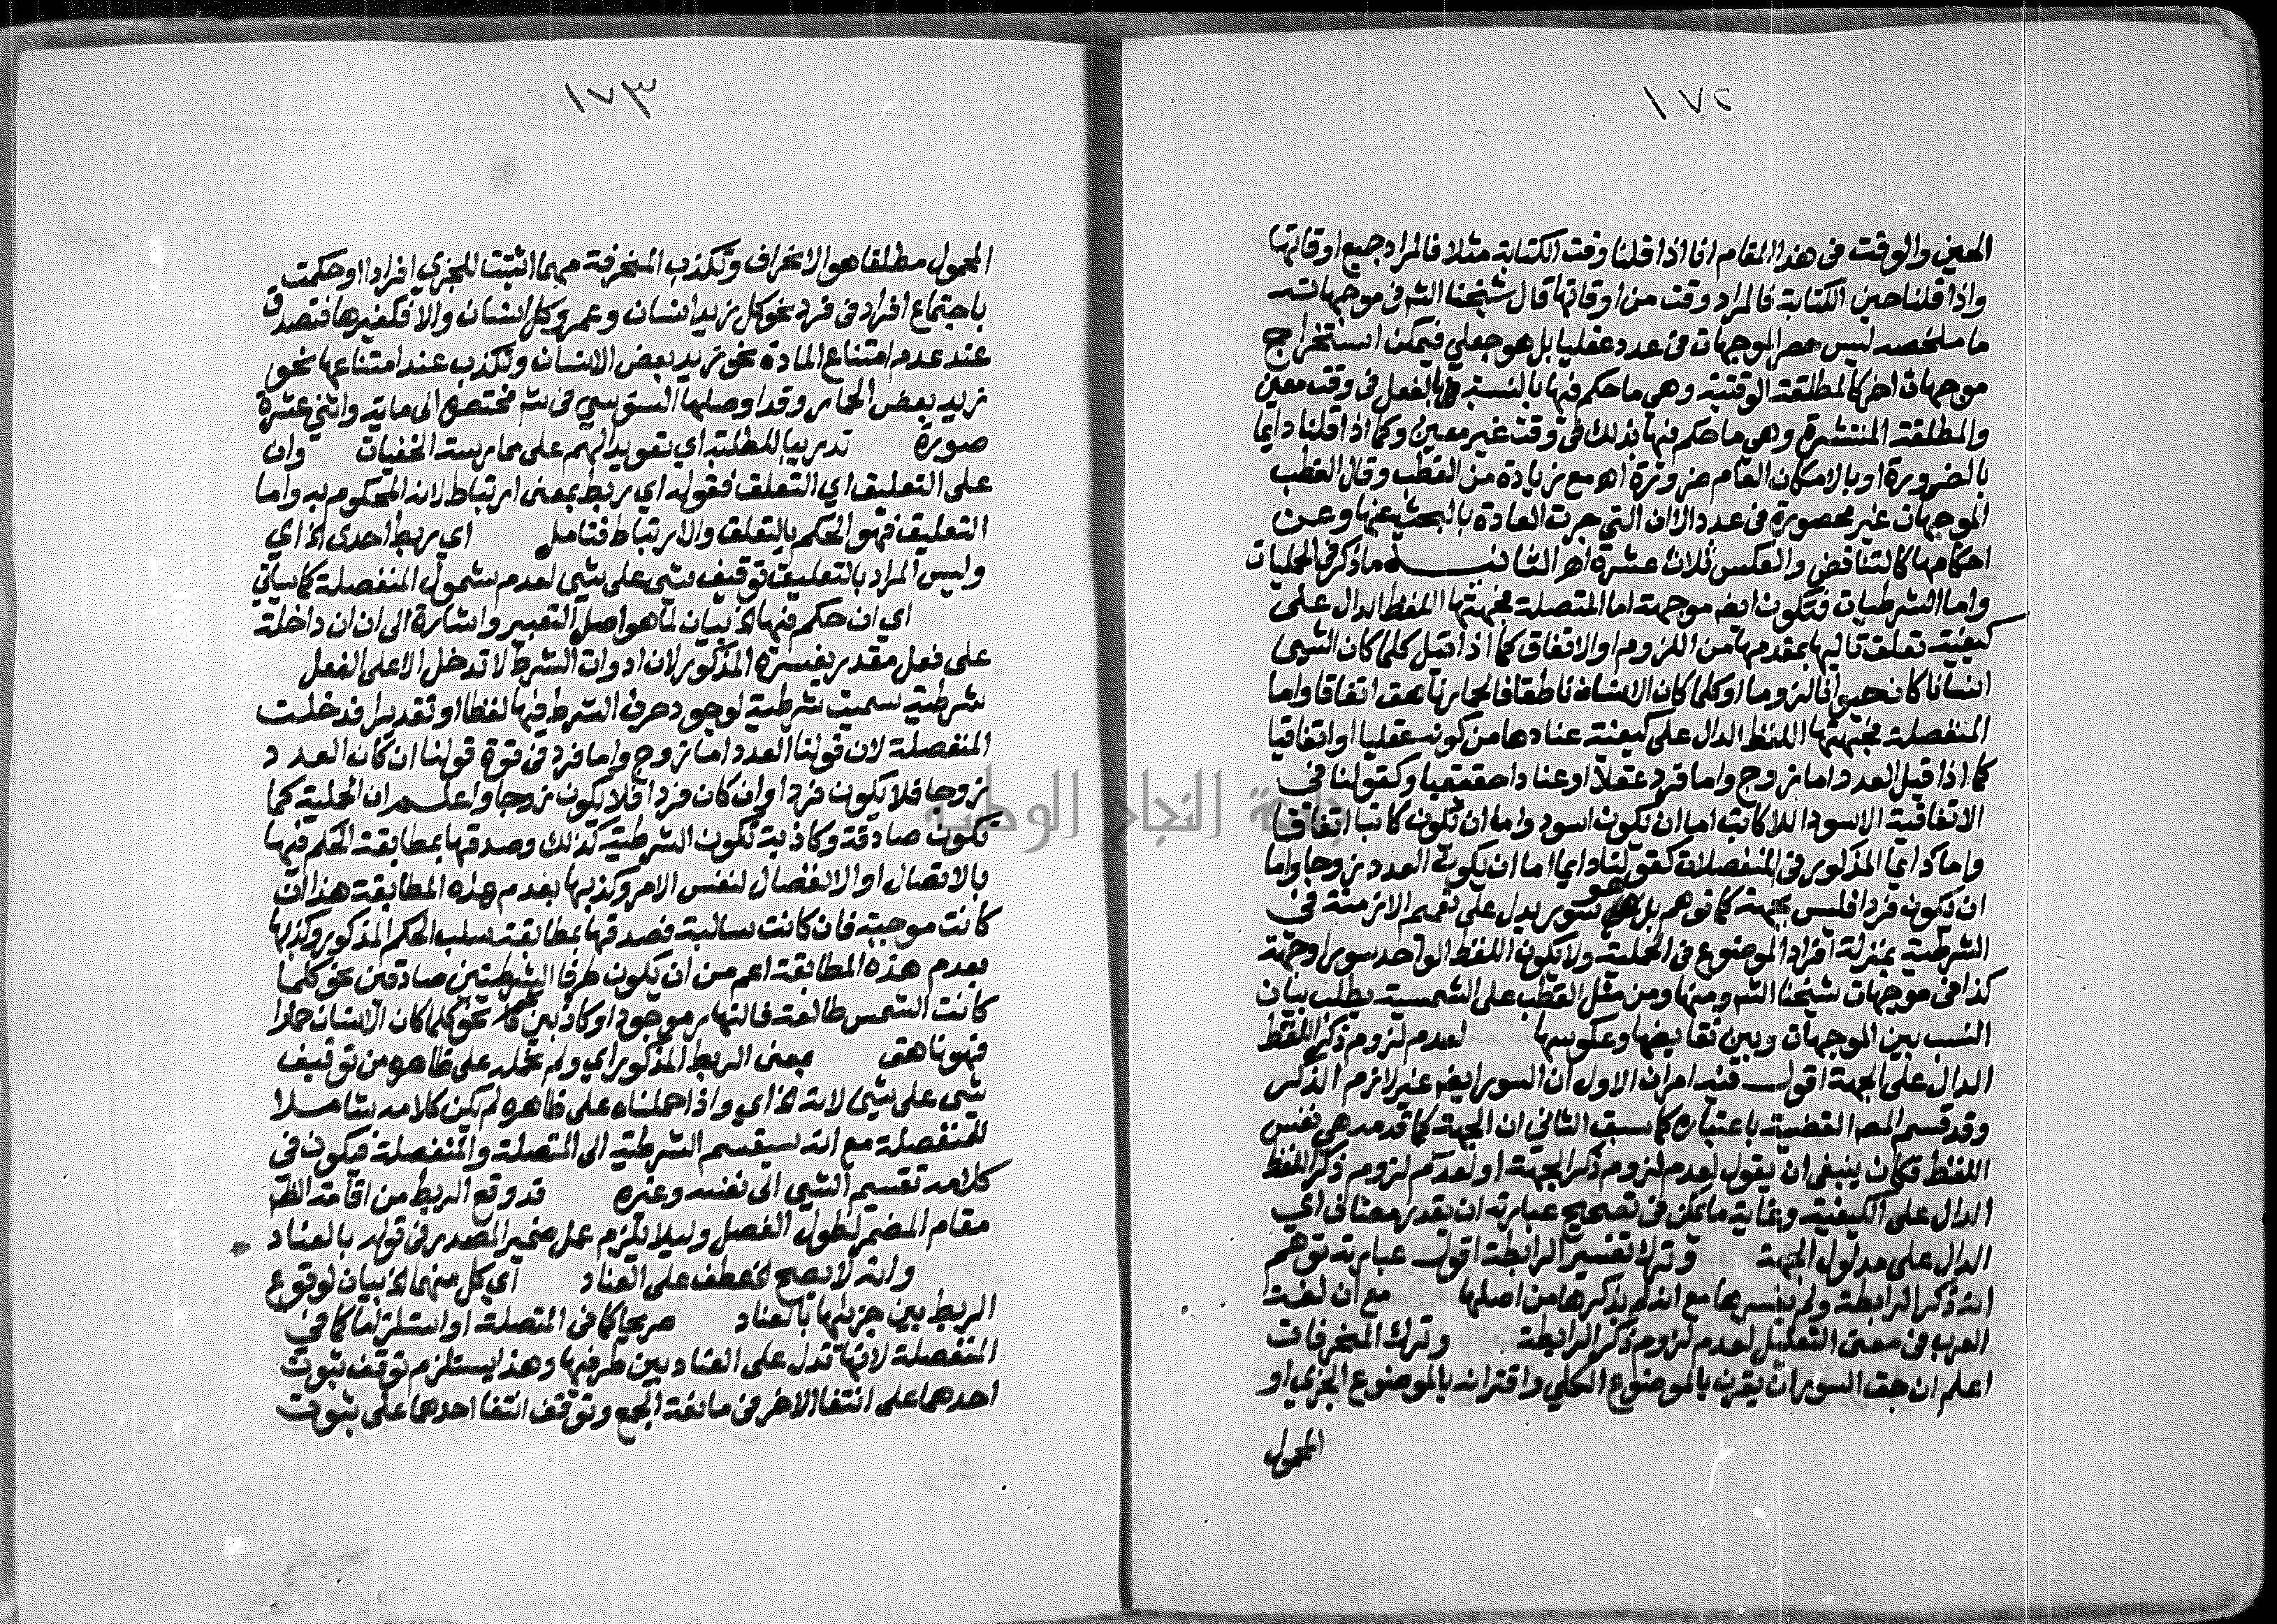 ١٧٢
المعين والوقت فى هذا المقام انا اذا قلنا وقت الكتابة مثلا فالمراد جميع اوقاتها
واذا قلنا حين الكتابة فالمراد وقت من اوقاتها قال شيخنا الش فى موجهاته
ما ملخصه ليس حصر الموجهات فى عدد عقليا بل هو جعلي فيمكن استخراج
موجهات اخر كالمطلقة الوقتية وهي ما حكم فيها بالنسبة بالفعل فى وقت معين
والمطلقة المنتشرة وهى ما حكم فيها بذلك فى وقت غير معين وكما اذا قلنا دايما
بالضرورة او بالامكان العام عزوزة اهـ مع زيادة من القطب وقال القطب
الموجهات غير محصورة فى عدد الا ان التي جرت العادة بالبحث عنها وعن
احكامها كالتناقض والعكس ثلاث عشرة اهـ الثانيـــه ما ذكر فى الحمليات
واما الشرطيات فتكون ايضه موجهة اما المتصلة فجهتها اللفظ الدال على
كيفية تعلق تاليها بمقدمها من اللزوم او الاتفاق كما اذا قيل كلما كان الشيى
انسانا كان حيوانا لزوما او كلما كان الانسان ناطقا فالحمار ناهق اتفاقا واما
المنفصلة فجهتها اللفظ الدال على كيفية عنادها من كونه عقليا او اتفاقيا
كما اذا قيل العدد اما زوج واما فرد عقلا او عنادا حقيقيا وكقولنا فى
الاتفاقية الاسود اللاكاتب اما ان تكون اسود واما ان تكون كاتبا اتفاقيا
واما دايما المذكور فى المنفصلات كقولنا دايما اما ان يكون العدد زوجا واما
ان تكون فردا فليس بجهة كما توهم بل هو سور يدل على تعميم الازمنة فى
الشرطية بمنزلة افراد الموضوع فى الحملية ولا يكون اللفظ الواحد سورا وجهة
كذا فى موجهات شيخنا الش ومنها ومن مثل القطب على الشمسية يطلب بيان
النسب بين الموجهات وبين نقايضها وعكوسها لعدم لزوم ذكر اللفظ
الدال على الجهة اقول فيه امران الاول ان السور ايضه غير لازم الذكر
وقد قسم المصه القضية باعتباره كما سبق الثاني ان الجهة كما قدمه هي نفس
اللفظ فكان ينبغى ان يقول لعدم لزوم ذكر الجهة او لعدم لزوم ذكر اللفظ
الدال على الكيفية وغاية ما يمكن فى تصحيح عبارته ان يقدر مضافى اي
الدال على مدلول الجهة وترك تفسير الرابطة اقول عبارته توهم
انه ذكر الرابطة ولم يفسرها مع انه لم يذكرها من اصلها مع ان لغة
العرب فى معنى التعليل لعدم لزوم ذكر الرابطة وترك المنحرفات
اعلم ان حق السور ان يقرن بالموضوع الكلي واقترانه بالموضوع الجزي او
المحمول
١٧٣
المحمول مطلقا هو الانحراف وتكذب المنحرفة مهما اثبتت للجزي افرادا او حكمت
باجتماع افراد فى فرد نحو كل زيد انسان وعمرو كل انسان والا فكغيرها فتصدق
عند عدم امتناع المادة نحو زيد بعض الانسان وتكذب عند امتناعها نحو
زيد بعض الحمار وقد اوصلها السنوسي فى ش مختصره الى ماية واثنى عشرة
صورة تدريبا للطلبة اي تعويد الهم على ممارسة الخفيات وان
على التعليق اي التعلق فقوله اي ربط بمعنى ارتباط لانه المحكوم به واما
التعليق فهو الحكم بالتعلق والارتباط فتامل اي ربط احدى الخ اي
وليس المراد بالتعليق توقيف شى على شيى لعدم شمول المنفصلة كما سياتي
اي ان حكم فيها الخ بيان لما هو اصل التعبير واشارة الى ان ان داخلة
على فعل مقدر يفسره المذكور لان ادوات الشرط لا تدخل الا على الفعل
شرطية سميت شرطية لوجود حرف الشرط فيها لفظا او تقديرا فدخلت
المنفصلة لان قولنا العدد اما زوج واما فرد فى قوة قولنا ان كان العدد
زوجا فلا يكون فردا وان كان فردا فلا يكون زوجا واعلـم ان الحملية كما
تكون صادقة وكاذبة تكون الشرطية كذلك وصدقها بمطابقة الحكم فيها
بالاتصال او الانفصال لنفس الامر وكذبها بعدم هذه المطابقة هذا ان
كانت موجبة فان كانت سالبة فصدقها بمطابقة سلب الحكم المذكور وكذبها
بعدم هذه المطابقة اعم من ان يكون طرفا الشرطيتين صادقين نحو كلما
كانت الشمس طالعة فالنهار موجود او كاذبين نحو كلما كان الانسان حمارا
فهو ناهق بمعنى الربط المذكور اي ولم نحمله على ظاهره من توقيف
شى على شيى لانه الخ اي واذا حملناه على ظاهره لم يكن كلامه شاملا
للمنفصلة مع انه سيقسم الشرطية الى المتصلة والمنفصلة فيكون فى
كلامه تقسيم الشي الى نفسه وغيره قد وقع الربط من اقامة الظ
مقام المضمر لطول الفصل وليلا يلزم عمل ضمير المصدر فى قوله بالعناد
وانه لا يصح الخ عطف على العناد اي كل منهما الخ بيان لوقوع
الربط بين جزيها بالعناد صريحا كما فى المتصلة او استلزاما كما فى
المنفصلة لانها تدل على العناد بين طرفيها وهذا يستلزم توقف ثبوت
احدهما على انتفا الاخر فى مانعة الجمع وتوقف انتفا احدهما على ثبوت
جامعة النجاح الوطنية